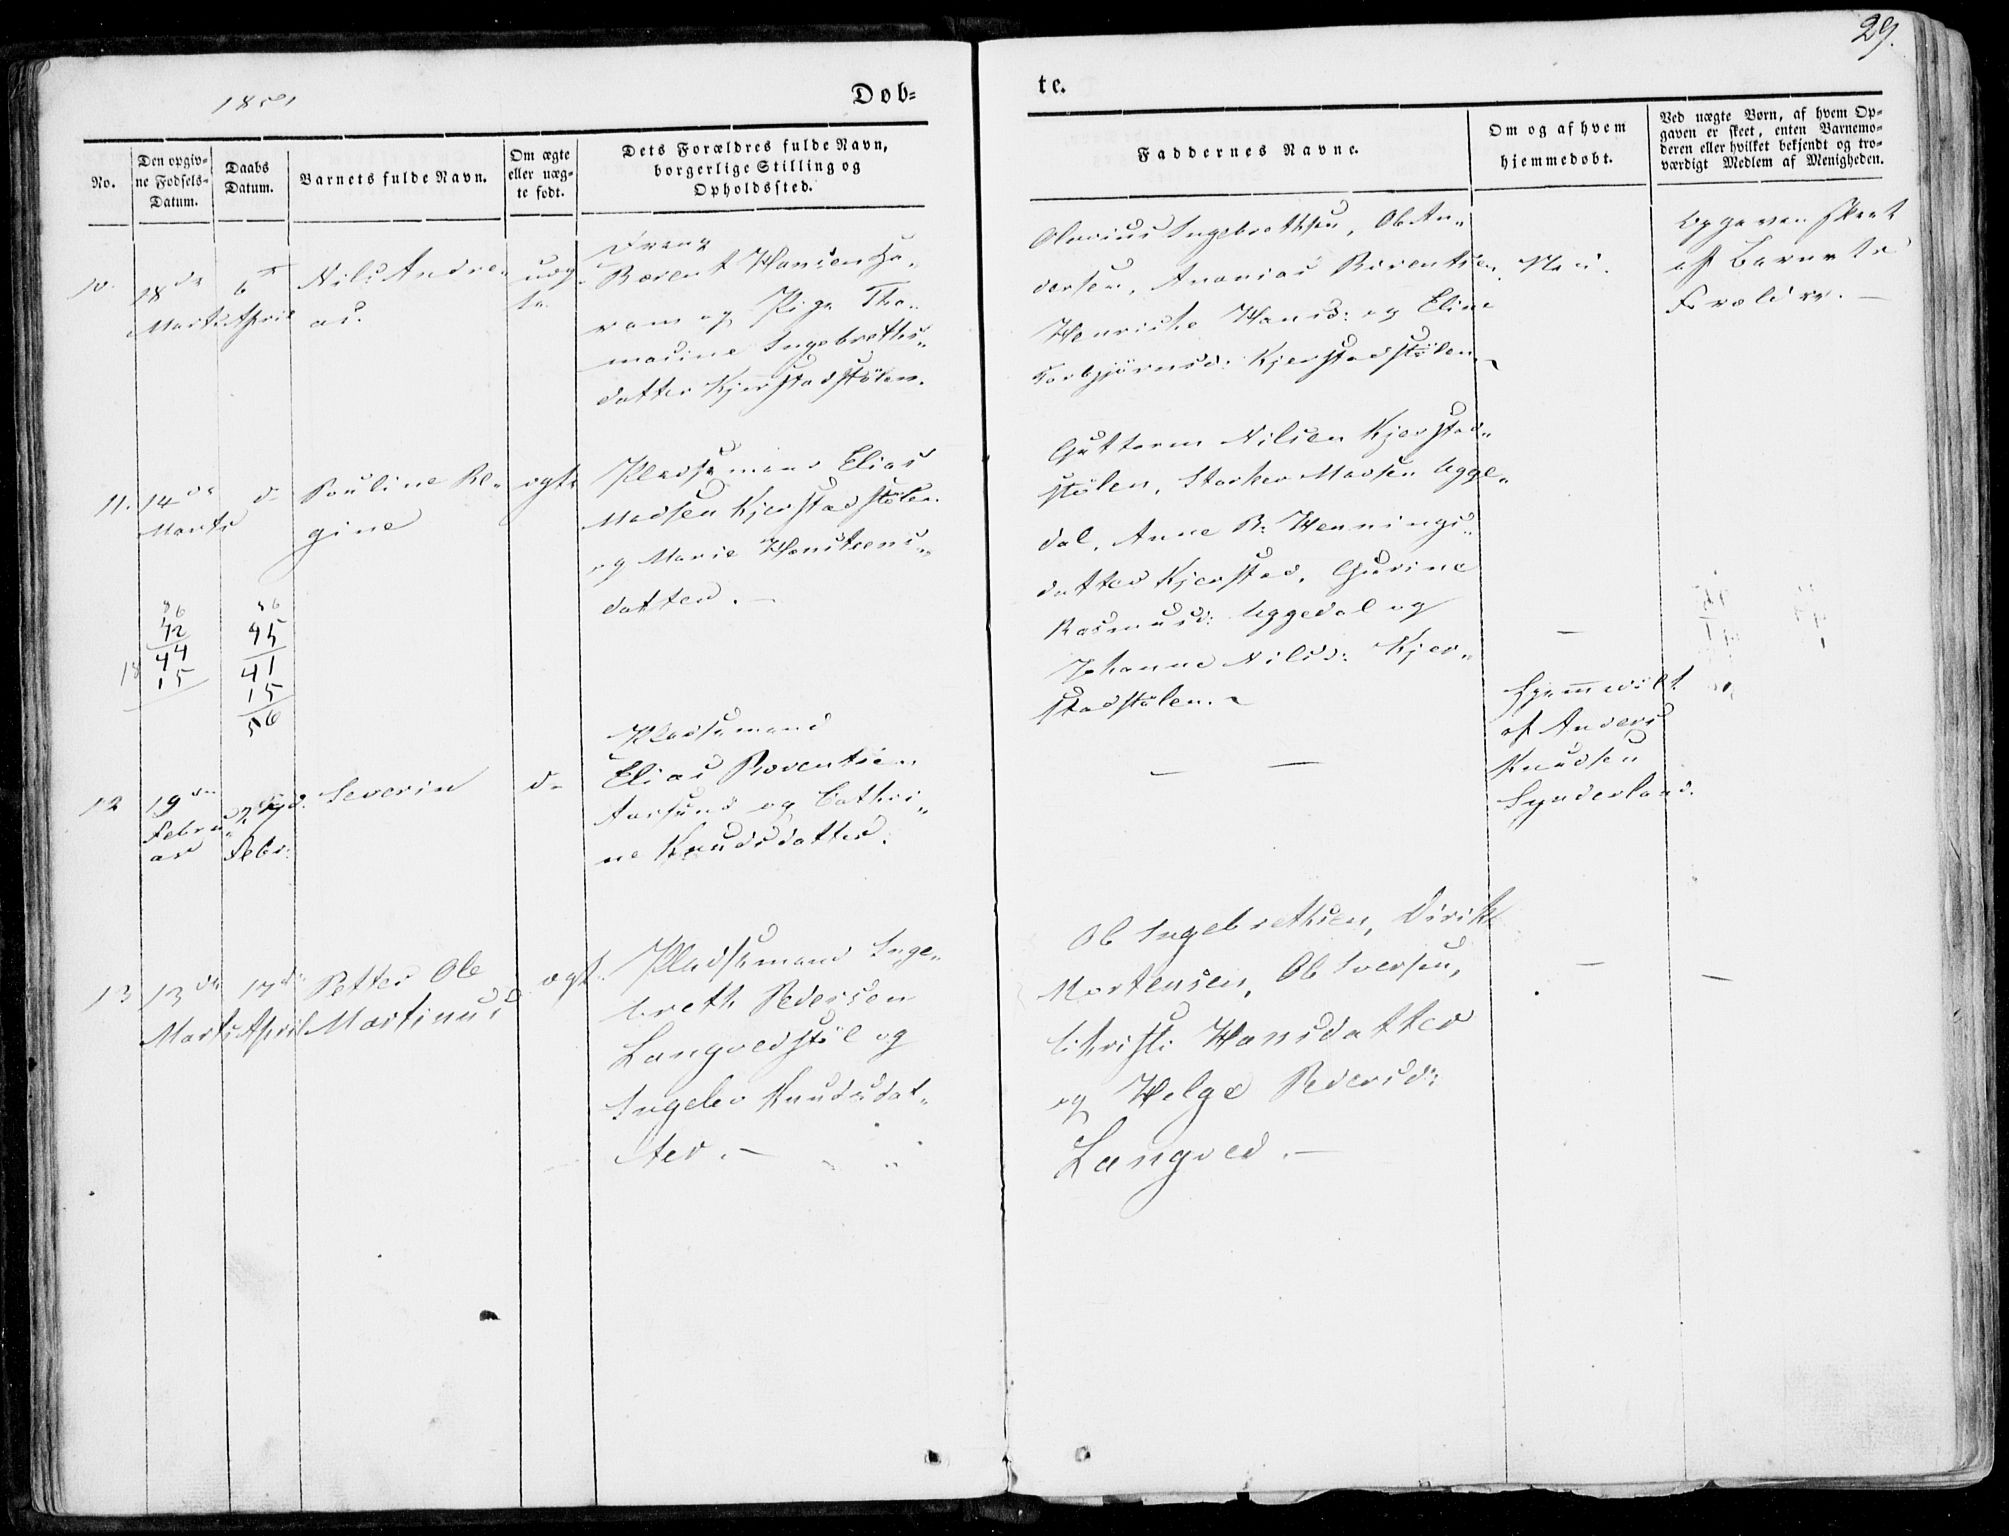 29.
1851
Døb-
te.
No.
Den opgiv-
ne Fødsels-
Datum.
Daabs
Datum.
Barnets fulde Navn.
Om ægte
eller uæg-
te født.
Dets Forældres fulde Navn,
borgerlige Stilling og
Opholdssted.
Faddernes Navne.
Om og af hvem
hjemmedøbt.
Ved uægte Børn, af hvem Op-
gaven er skeet, enten Barnemo-
deren eller hvilket bekjendt og tro-
værdigt Medlem af Menigheden.
10.
18de
Marts
6te
April
Nils Andre-
as.
uæg
te
Dreng
Berent Hansen Ha-
ram og Pige Tho-
masine Ingebretts-
datter Kjerstadstølen.
Olavius Ingebrethsen, Ole An-
dersen, Ananias Berentsen,
Henrikke Hansd: og Eline
Torbjørnsd: Kjerstadstølen
Nei.
Opgaven skeet
af Barnets
Forældre. —
11.
14de
Marts
do
Pauline Re-
gine
ægte
Pladsemand Elias
Madsen Kjerstadstølen
og Marie
datter. —
Guttorm Nilsen Kjerstad-
stølen, Madsen Ugge-
dal, Anne B: Hennings-
datter Kjerstad, Gurine
Rasmusd: Uggedal og
Johanne Nilsd: Kjer-
stadstølen.
—
36
42
44
15
36
45
41
15
56
12
19de
Febru-
ar
Febr:
Severin
do
Pladsemand
Elias Berentsen
og Cathri-
ne Knudsdatter.
— —
Hjemmedøbt
af Anders
Knudsen
Synderland.
13
13de
Marts
17de
April
Petter Ole
Martinus
ægt.
Pladsemand Inge-
breth Pedersen
Langvedstøl og
Ingebor Knudsdat-
ter. —
Ole Ingebrethsen, Dirik
Mortensen, Ole Iversen,
Christi Hansdatter
og Helge Pedersd:
Langved. —
—
—